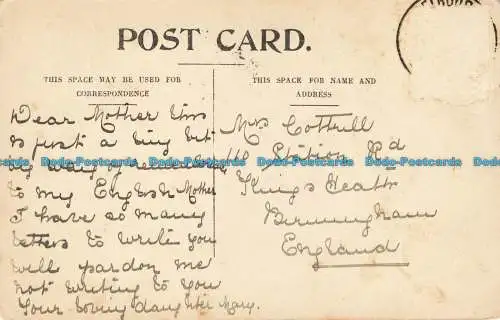 POST CARD.
THIS SPACE MAY BE USED FOR
CORRESPONDENCE
THIS SPACE FOR NAME AND
ADDRESS
Dear Mother this
is just a tiny bit
by way of
to my English Mother
I have so many
letters to write you
will pardon me
not writing to you
Your loving daughter Mary.
Mrs Cottrill
110 Station Rd
Kings Heath
Birmingham
England
Dodo-Postcards Dodo-Postcards Dodo-Postcards Dodo-Postcards